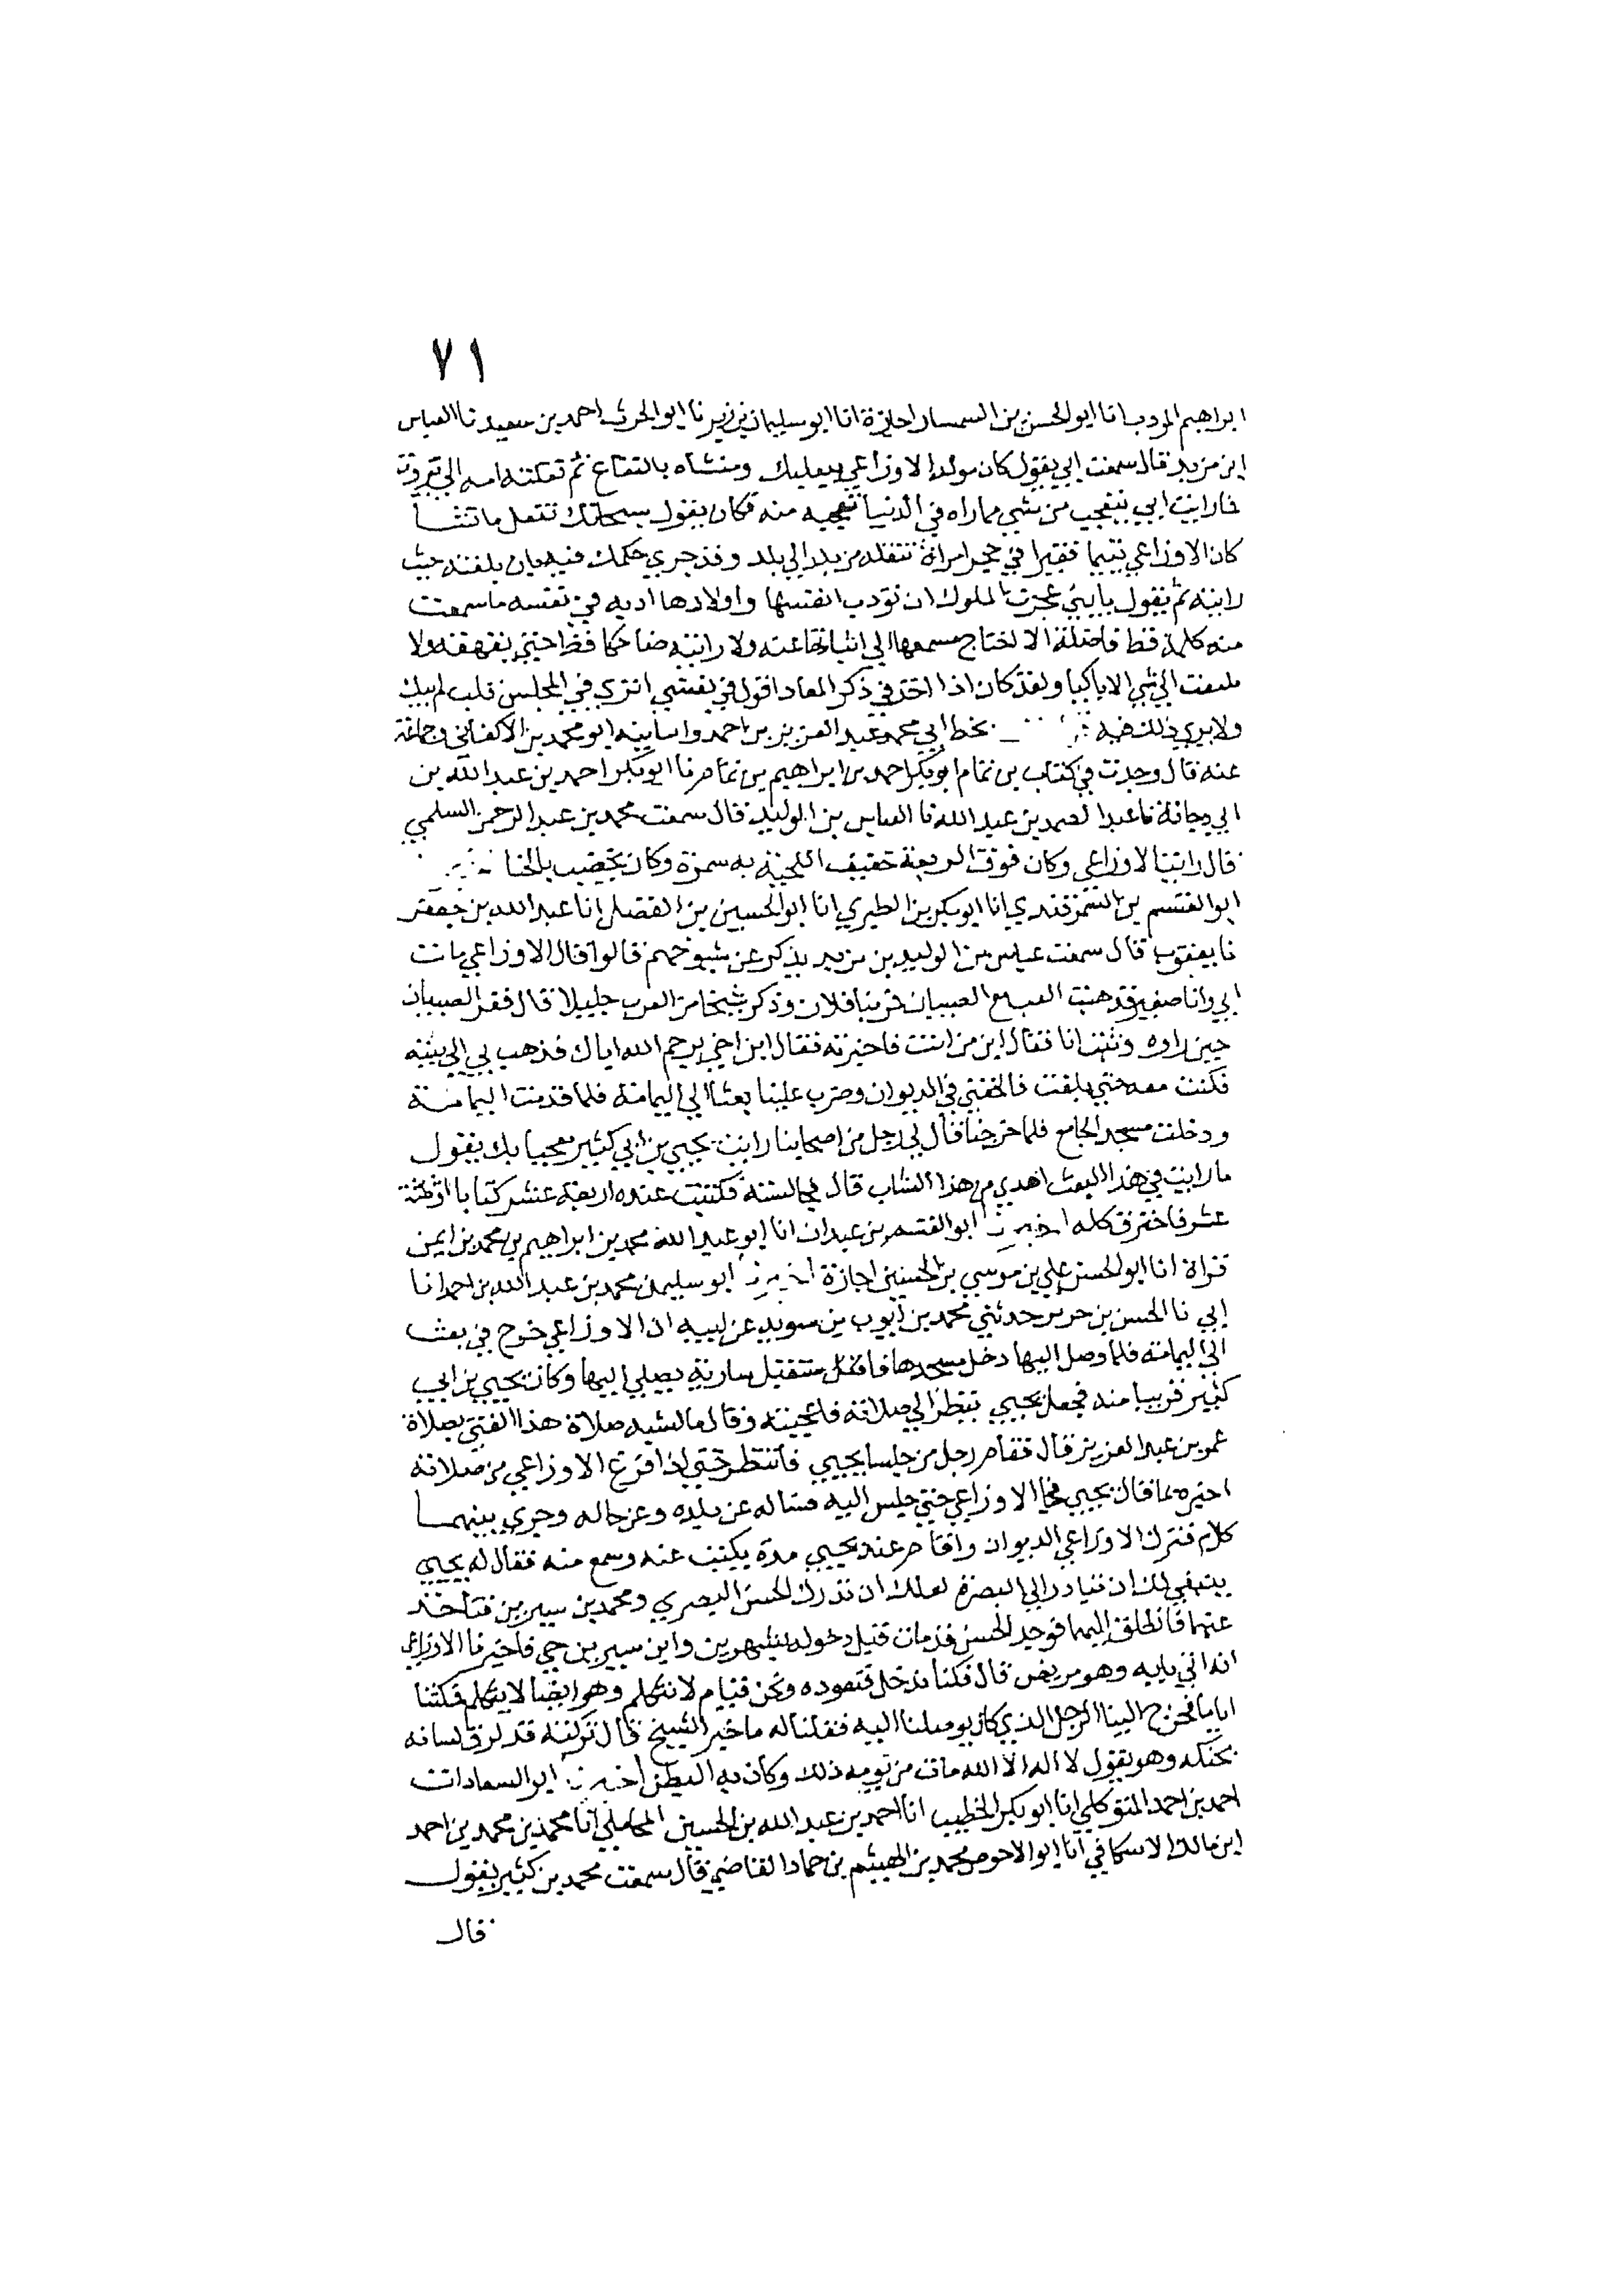 ٧١
ابراهيم المودب انا ابو الحسن بن السمسار اجازة انا ابو سليمان بن زبر نا ابو الحرث احمد بن سعيد نا العباس
ابن مزيد قال سمعت ابي يقول كان مولد الاوزاعي ببعلبك ومنشاه بالبقاع ثم نقلته امه الي بيروت
فما رايت ابي يتعجب من شي مما راه في الدنيا تعجبه منه فكان يقول سبحانك تفعل ما تشا
كان الاوزاعي يتيما فقيرا في حجر امراة تنقله من بلد الي بلد وقد جري حكمك فيه بان بلغته حيث
رايته ثم يقول يا بني عجزت الملوك ان تودب انفسها واولادها ادبه في نفسه ما سمعت
منه كلمة قط فاضلة الا احتاج مسمعها الي اثباتها عنه ولا رايته ضاحكا قط حتي يقهقه ولا
ملتفت الي شي الا باكيا ولقد كان اذا اخذ في ذكر المعاد اقول في نفسي اتري في المجلس قلب لم يبك
ولا يري ذلك فيه بخط ابي محمد عبد العزيز بن احمد وانبانيه ابو محمد بن الاكفاني وجماعة
عنه قال وجدت في كتاب بن تمام ابو بكر احمد بن ابراهيم بن تمام نا ابو بكر احمد بن عبد الله بن
ابي دجانة نا عبد الصمد بن عبد الله نا العباس بن الوليد قال سمعت محمد بن عبد الرحمن السلمي
قال رايت الاوزاعي وكان فوق الربعة خفيف اللحية به سمرة وكان يخضب بالحنا
ابو القسم بن السمرقندي انا ابو بكر بن الطبري انا ابو الحسين بن الفضل انا عبد الله بن جعفر
نا يعقوب قال سمعت عباس بن الوليد بن مزيد يذكر عن شيوخهم قالوا قال الاوزاعي مات
ابي وانا صغير فذهبت العب مع الصبيان فمر بنا فلان وذكر شيخا من العرب جليلا قال ففر الصبيان
حين راوه وثبت انا فقال ابن من انت فاخبرته فقال ابن اخي يرحم الله اباك فذهب بي الي بيته
فكنت معه حتي بلغت فالحقني في الديوان وضرب علينا بعثا الي اليمامة فلما قدمت اليمامة
ودخلت مسجد الجامع فلما خرجنا قال لي رجل من اصحابنا رايت يحيي بن ابي كثير معجبا بك يقول
ما رايت في هذا البعث اهدي من هذا الشاب قال فجالسته فكتبت عنده اربعة عشر كتابا او ثلثة
عشر فاحترق كله اخبرنا ابو القسم بن عبدان انا ابو عبد الله محمد بن ابراهيم بن محمد بن ايمن
قراة انا ابو الحسن علي بن موسي بن الحسين اجازة اخبرنا ابو سليمن محمد بن عبد الله بن احمد انا
ابي نا الحسن بن جرير حدثني محمد بن ايوب بن سويد عن ابيه ان الاوزاعي خرج في بعث
الي اليمامة فلما وصل اليها دخل مسجدها فاقبل مستقبل سارية يصلي اليها وكان يحيي بن ابي
كثير قريبا منه فجعل يحيي ينظر الي صلاته فاعجبته وقال ما اشبه صلاة هذا الفتي بصلاة
عمر بن عبد العزيز قال فقام رجل من جلسا يحيي فانتظر حتي اذا فرغ الاوزاعي من صلاته
اخبره بما قال يحيي فجا الاوزاعي حتي جلس اليه فساله عن بلده وعن حاله وجري بينهما
كلام فترك الاوزاعي الديوان واقام عند يحيي مدة يكتب عنه وسمع منه فقال له يحيي
ينبغي لك ان تبادر الي البصرة لعلك ان تدرك الحسن البصري ومحمد بن سيرين فتاخذ
عنهما فانطلق اليهما فوجد الحسن قد مات قبل دخوله بشهرين وابن سيرين حي فاخبرنا الاوزاعي
انه اتي بابه وهو مريض قال فكنا ندخل فنعوده ونحن قيام لا نتكلم وهو ايضا لا يتكلم فمكثنا
اياما فخرج الينا الرجل الذي كان يوصلنا اليه فقلنا له ما خبر الشيخ قال تركته قد لزق لسانه
بحنكه وهو يقول لا اله الا الله مات من يومه ذلك وكان به البطن اخبرنا ابو السعادات
احمد بن احمد المتوكلي انا ابو بكر الخطيب انا احمد بن عبد الله بن الحسين المحاملي انا محمد بن محمد بن احمد
ابن مالك الاسكافي انا ابو الاحوص محمد بن الهيثم بن حماد القاضي قال سمعت محمد بن كثير يقول
قال